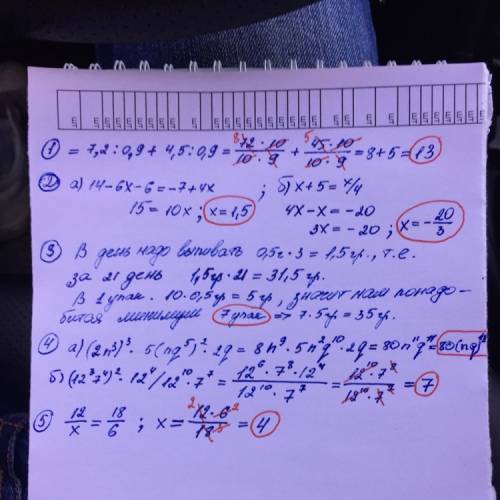 ① = 7,2 : 0,9 + 4,5 : 0,9 = 72·10/10·9 + 45·10/10·9 = 8 + 5 = 13
② а) 14 - 6x - 6 = -7 + 4x ; б) x + 5 = x/4
15 = 10x ; x = 1,5 4x - x = -20
3x = -20 ; x = -20/3
③ В день надо выпивать 0,5г·3 = 1,5гр., т.е.
за 21 день 1,5гр·21 = 31,5гр.
В 1 упак. 10·0,5гр = 5гр, значит нам понадо-
бится минимум 7 упак => 7·5гр = 35гр.
④ а) (2n³)³ · 5(nq⁵)² · 2q = 8n⁹ · 5n²q¹⁰ · 2q = 80n¹¹q¹¹ = 80(nq)¹¹
б) (12³7⁴)² · 12⁴ / 12¹⁰ · 7⁷ = 12⁶ · 7⁸ · 12⁴ / 12¹⁰ · 7⁷ = 12¹⁰ · 7⁸ / 12¹⁰ · 7⁷ = 7
⑤ 12/x = 18/6 ; x = 12·6/18 = 4